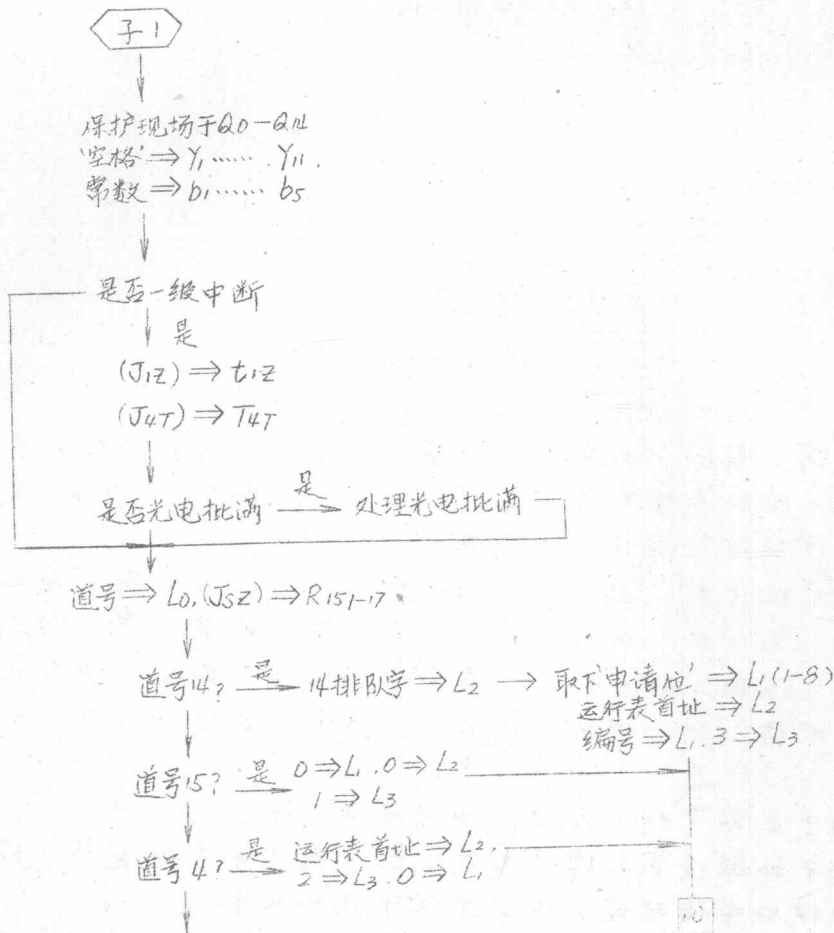 子1
保护现场于Q0—Q14
'空格'⇒Y₁……Y₁₁.
常数⇒b₁……b₅
是否一级中断
是
(J₁Z)⇒t₁Z
(J₄T)⇒T₄T
是否光电批满 是 处理光电批满
道号⇒L₀,(JSZ)⇒R₁₅₁₋₁₇
道号14? 是 14排队字⇒L₂ → 取下'申请位'⇒L₁(1-8)
运行表首址⇒L₂
编号⇒L₁.3⇒L₃
道号15? 是 0⇒L₁.0⇒L₂
1⇒L₃
道号4? 是 运行表首址⇒L₂,
2⇒L₃.0⇒L₁